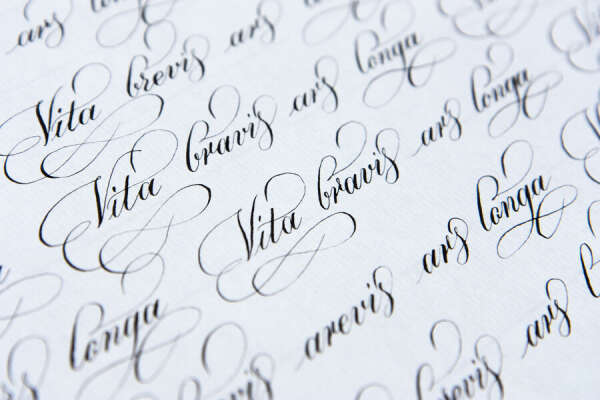 ars longa
Vita brevis ars longa
Vita bravis ars longa
Vita bravis ars longa
longa arevis ars
ars